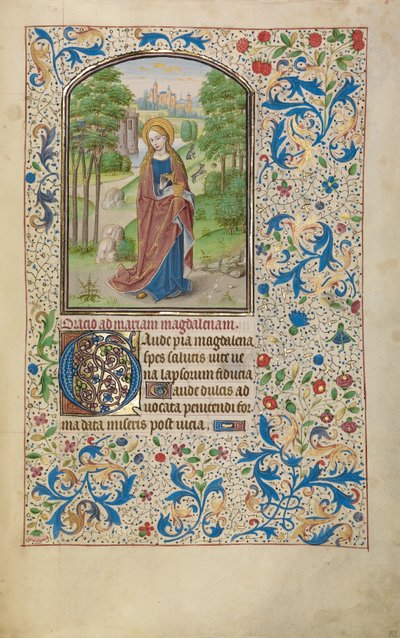 Oracio ad mariam magdalenam.
Gaude pia magdalena
spes salutis vite ve
na lapsorum fiducia
Gaude dulcis ad
uocata penitendi for
ma data miseris post uicia